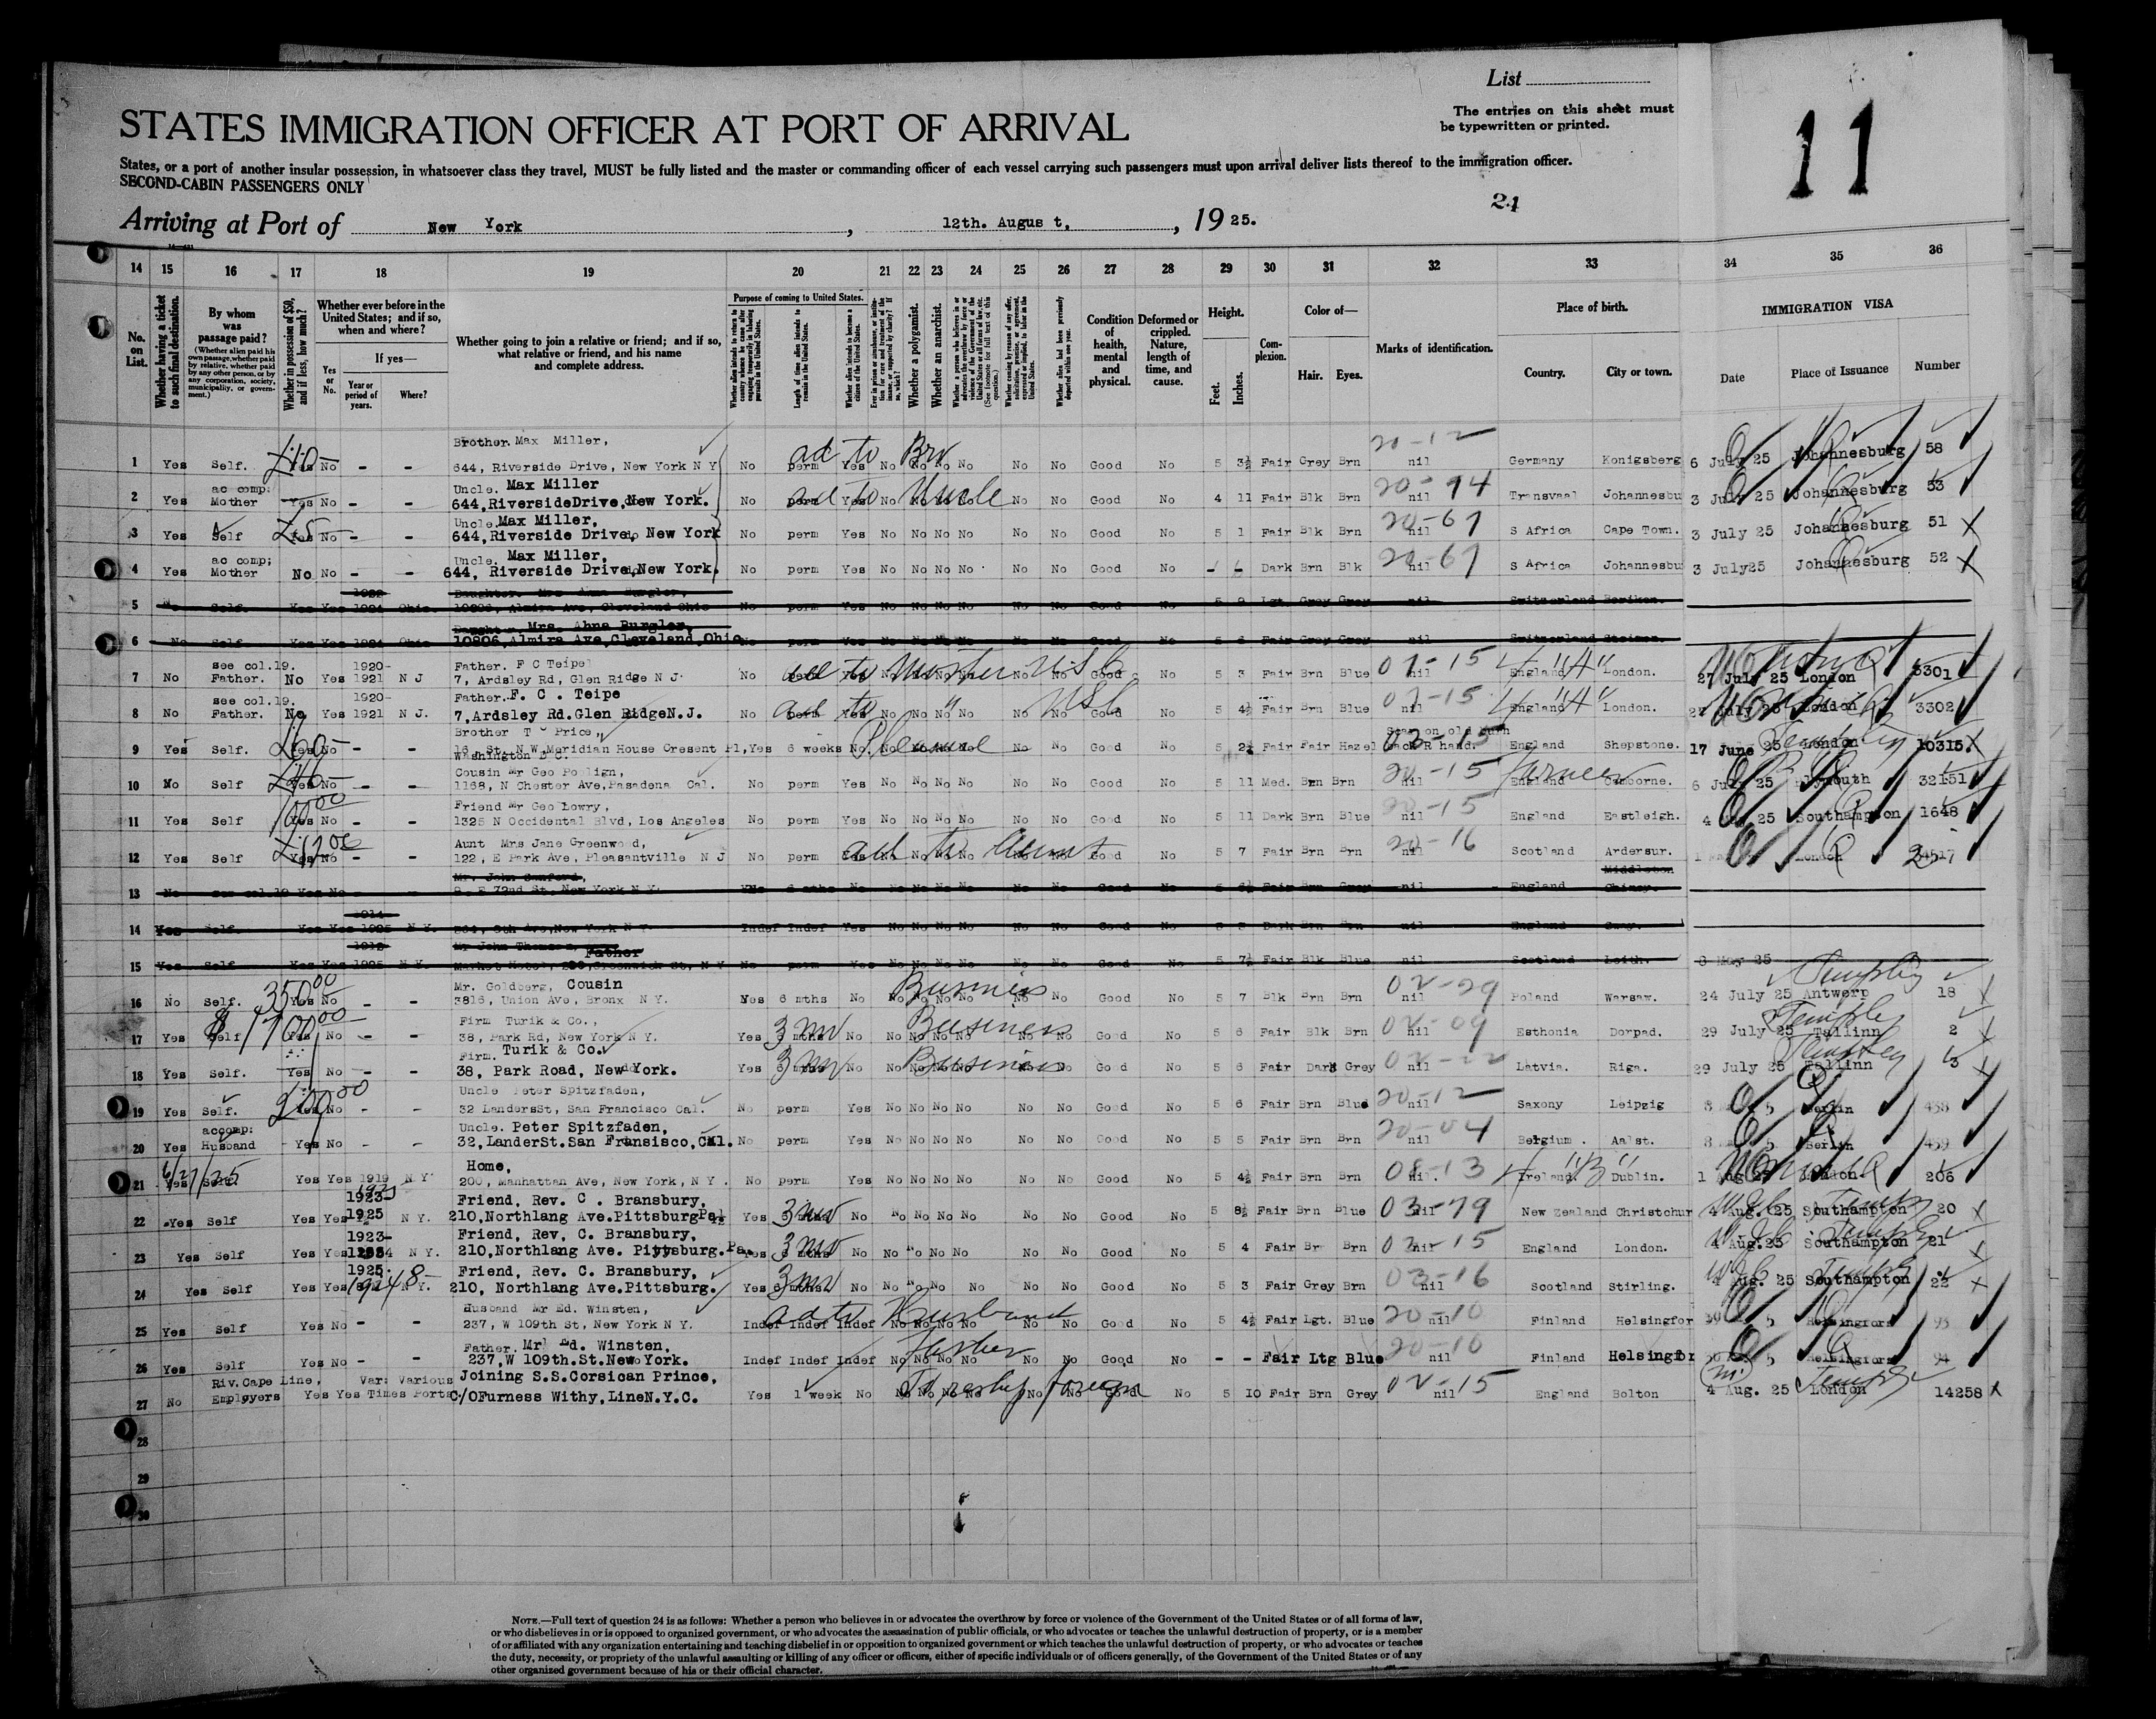 List
The entries on this sheet must
be typewritten or printed.
11
STATES IMMIGRATION OFFICER AT PORT OF ARRIVAL
States, or a port of another insular possession, in whatsoever class they travel, MUST be fully listed and the master or commanding officer of each vessel carrying such passengers must upon arrival deliver lists thereof to the immigration officer.
SECOND-CABIN PASSENGERS ONLY
24
Arriving at Port of New York, 12th. Augus t, 1925.
14 15 16 17 18 19 20 21 22 23 24 25 26 27 28 29 30 31 32 33 34 35 36
No. on List.
Whether having a ticket to such final destination.
By whom was passage paid?
(Whether alien paid his own passage, whether paid by relative, whether paid by any other person, or by any corporation, society, municipality, or government.)
Whether in possession of $50, and if less, how much?
Whether ever before in the United States; and if so, when and where?
Yes or No.
If yes—
Year or period of years.
Where?
Whether going to join a relative or friend; and if so, what relative or friend, and his name and complete address.
Purpose of coming to United States.
Length of time alien intends to remain in the United States.
Whether alien intends to become a citizen of the United States.
Whether a polygamist.
Whether an anarchist.
Condition of health, mental and physical.
Deformed or crippled. Nature, length of time, and cause.
Height.
Feet. Inches.
Complexion.
Color of—
Hair. Eyes.
Marks of identification.
Place of birth.
Country. City or town.
IMMIGRATION VISA
Date Place of Issuance Number
Brother. Max Miller,
1 Yes Self. £40- Yes No - - 644, Riverside Drive, New York N Y No perm Yes No No No No No No Good No 5 3½ Fair Grey Brn nil Germany Konigsberg 6 July 25 Johannesburg 58
ad to Bro 20-12
ac comp: Uncle. Max Miller
2 Yes Mother Yes No - - 644,RiversideDrive,New York. No perm Yes No No No No No No Good No 4 11 Fair Blk Brn nil Transvaal Johannesbu 3 July 25 Johannesburg 53
ad to Uncle 20-94
Uncle. Max Miller,
3 Yes Self £5- Yes No - - 644,Riverside Drive, New York No perm Yes No No No No No No Good No 5 1 Fair Blk Brn nil S Africa Cape Town. 3 July 25 Johannesburg 51
20-67
ac comp; Uncle. Max Miller,
4 Yes Mother No No - - 644, Riverside Drive,New York. No perm Yes No No No No No No Good No - - Dark Brn Blk nil S Africa Johannesbu 3 July25 Johannesburg 52
20-67
Daughter. Mrs Anna Burgler,
5 No Self. Yes Yes 1924 Ohio. 10806, Almira Ave, Cleveland Ohio No perm Yes No No No No No No Good No 5 9 Lgt. Grey Grey nil Switzerland
Daughter, Mrs. Ahna Burgler,
6 No Self. Yes Yes 1924 Ohio 10806,Almira Ave,Cleveland,Ohio No perm Yes No No No No No No Good No Fair Grey Grey nil Switzerland
see col.19. 1920- Father. F C Teipel
7 No Father. No Yes 1921 N J 7, Ardsley Rd, Glen Ridge N J No perm Yes No No No No No No Good No 5 3 Fair Brn Blue nil England London. 27 July 25 London 3301
07-15
see col.19. 1920- Father. F. C . Teipe
8 No Father. No Yes 1921 N J. 7,Ardsley Rd.Glen RidgeN.J. No perm Yes No No No No No No Good No 5 4½ Fair Brn Blue nil England London. 27 July 25 London 3302
07-15
Brother T Price,
9 Yes Self. £60- Yes No - - 16 St. N.W,Meridian House Cresent Pl, Yes 6 weeks No No No No No No No Good No 5 2¼ Fair Fair Hazel back R hand. England Shepstone. 17 June 25 London 10315.
Washington D C. Pleasure 03-15
Cousin Mr Geo Poolign,
10 No Self Yes No - - 1168, N Chester Ave,Pasadena Cal. No perm Yes No No No No No No Good No 5 11 Med. Brn Brn nil England Camborne. 6 July 25 Plymouth 32151
20-15
Friend Mr Geo Lowry,
11 Yes Self Yes No - - 1325 N Occidental Blvd, Los Angeles No perm Yes No No No No No No Good No 5 11 Dark Brn Blue nil England Eastleigh. 4 25 Southampton 1648
20-15
Aunt Mrs Jane Greenwood,
12 Yes Self Yes No - - 122, E Park Ave, Pleasantville N J No perm Yes No No No No No No Good No 5 7 Fair Brn Brn nil Scotland Ardersur. London
ad to Aunt 20-16
Mr. John Sanford, Middleton
13 No see col.19 Yes No 8. E 72nd St, New York N Y. 6 mths No No No No No No No Good No 5 6½ Fair Brn Grey nil England
1914
14 Yes Self. Yes Yes 1925 N Y. 5th Ave,New York N Y. Indef Indef Yes No No No No No No Good No Dark Brn Brn nil England
1912 Mr John Thomson, Father
15 Yes Self Yes Yes 1925 N Y. Greenwich St, N Y No perm Yes No No No No No No Good No 5 7½ Fair Blk Blue nil Scotland Leith. 8 May 25
Mr. Goldberg, Cousin
16 No Self. 350.00 Yes No - - 3816, Union Ave, Bronx N Y. Yes 6 mths No No No No No No No Good No 5 7 Blk Brn Brn nil Poland Warsaw. 24 July 25 Antwerp 18
Business 02-29
Firm Turik & Co.,
17 Yes Self Yes No - - 38, Park Rd, New York N Y. Yes 6 mths No No No No No No No Good No 5 6 Fair Blk Brn nil Esthonia Dorpad. 29 July 25 Tallinn 2
Business 02-09
Firm. Turik & Co.
18 Yes Self. Yes No - - 38, Park Road, New York. Yes 6 mths No No No No No No No Good No 5 6 Fair Dark Grey nil Latvia. Riga. 29 July 25 Tallinn 3
Business 02-22
Uncle Peter Spitzfaden,
19 Yes Self. Yes No - - 32 LandersSt, San Francisco Cal. No perm Yes No No No No No No Good No 5 6 Fair Brn Blue nil Saxony Leipzig Berlin 438
20-12
accomp: Uncle. Peter Spitzfaden,
20 Yes Husband Yes No - - 32,LanderSt.San Fransisco,Cal. No perm Yes No No No No No No Good No 5 5 Fair Brn Brn nil Belgium . Aalst. Berlin 439
20-04
Home,
21 Yes Self Yes Yes 1919 N Y 200, Manhattan Ave, New York, N Y . No perm Yes No No No No No No Good No 5 4½ Fair Brn Brn nil. Ireland. Dublin. 1 Aug 25 London 206
6/27/25 08-13 "B"
1923- Friend, Rev. C . Bransbury,
22 Yes Self Yes Yes 1925 N Y. 210,Northlang Ave.Pittsburg Pa. Yes 6 mths No No No No No No No Good No 5 8½ Fair Brn Blue nil New Zealand Christchur 4 Aug. 25 Southampton 20
3 mo 03-79
1923- Friend, Rev, C. Bransbury,
23 Yes Self Yes Yes N Y. 210,Northlang Ave. Pittsburg. Pa. Yes 6 mths No No No No No No No Good No 5 4 Fair Br Brn nil England London. 4 Aug.25 Southampton 21
3 mo 03-15
1925. Friend, Rev. C. Bransbury,
24 Yes Self Yes Yes N Y. 210, Northlang Ave.Pittsburg. Yes 6 mths No No No No No No No Good No 5 3 Fair Grey Brn nil Scotland Stirling. 4 Aug. 25 Southampton 22
3 mo 03-16
Husband Mr Ed. Winsten,
25 Yes Self Yes No - - 237, W 109th St, New York N Y. Indef Indef Indef No No No No No No Good No 5 4½ Fair Lgt. Blue nil Finland Helsingfor 30 Helsingfors 93
ad to Husband 20-10
Father. Mr Ed. Winsten,
26 Yes Self Yes No - - 237,W 109th.St.New York. Indef Indef Indef No No No No No No Good No - - Fair Ltg Blue nil Finland Helsingfor 30 Helsingfors 94
Father 20-10
Riv.Cape Line, Var: Various Joining S.S.Corsican Prince,
27 No Employers Yes Yes Times Ports C/OFurness Withy,LineN.Y.C. Yes 1 week No No No No No No No Good No 5 10 Fair Brn Grey nil England Bolton 4 Aug. 25 London 14258
02-15
28
29
30
NOTE.—Full text of question 24 is as follows: Whether a person who believes in or advocates the overthrow by force or violence of the Government of the United States or of all forms of law,
or who disbelieves in or is opposed to organized government, or who advocates the assassination of public officials, or who advocates or teaches the unlawful destruction of property, or is a member
of or affiliated with any organization entertaining and teaching disbelief in or opposition to organized government or which teaches the unlawful destruction of property, or who advocates or teaches
the duty, necessity, or propriety of the unlawful assaulting or killing of any officer or officers, either of specific individuals or of officers generally, of the Government of the United States or of any
other organized government because of his or their official character.